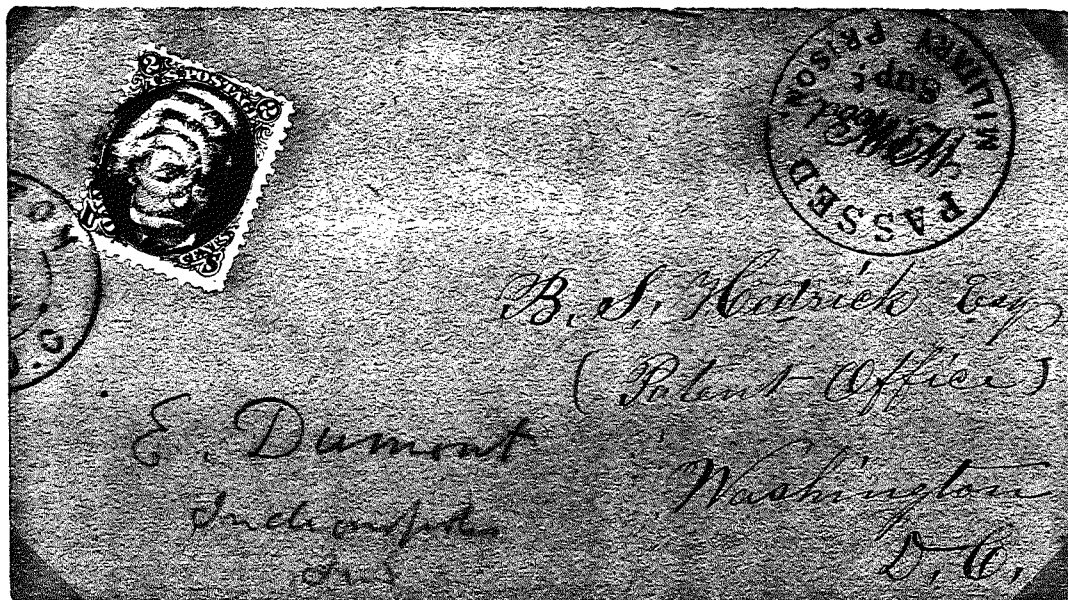 PASSED MILITARY PRISON
W. P. Wood
Supt
B. S. Hedrick Esq
(Patent Office)
Washington
D. C.
E. Dumont
Indianapolis
Ind